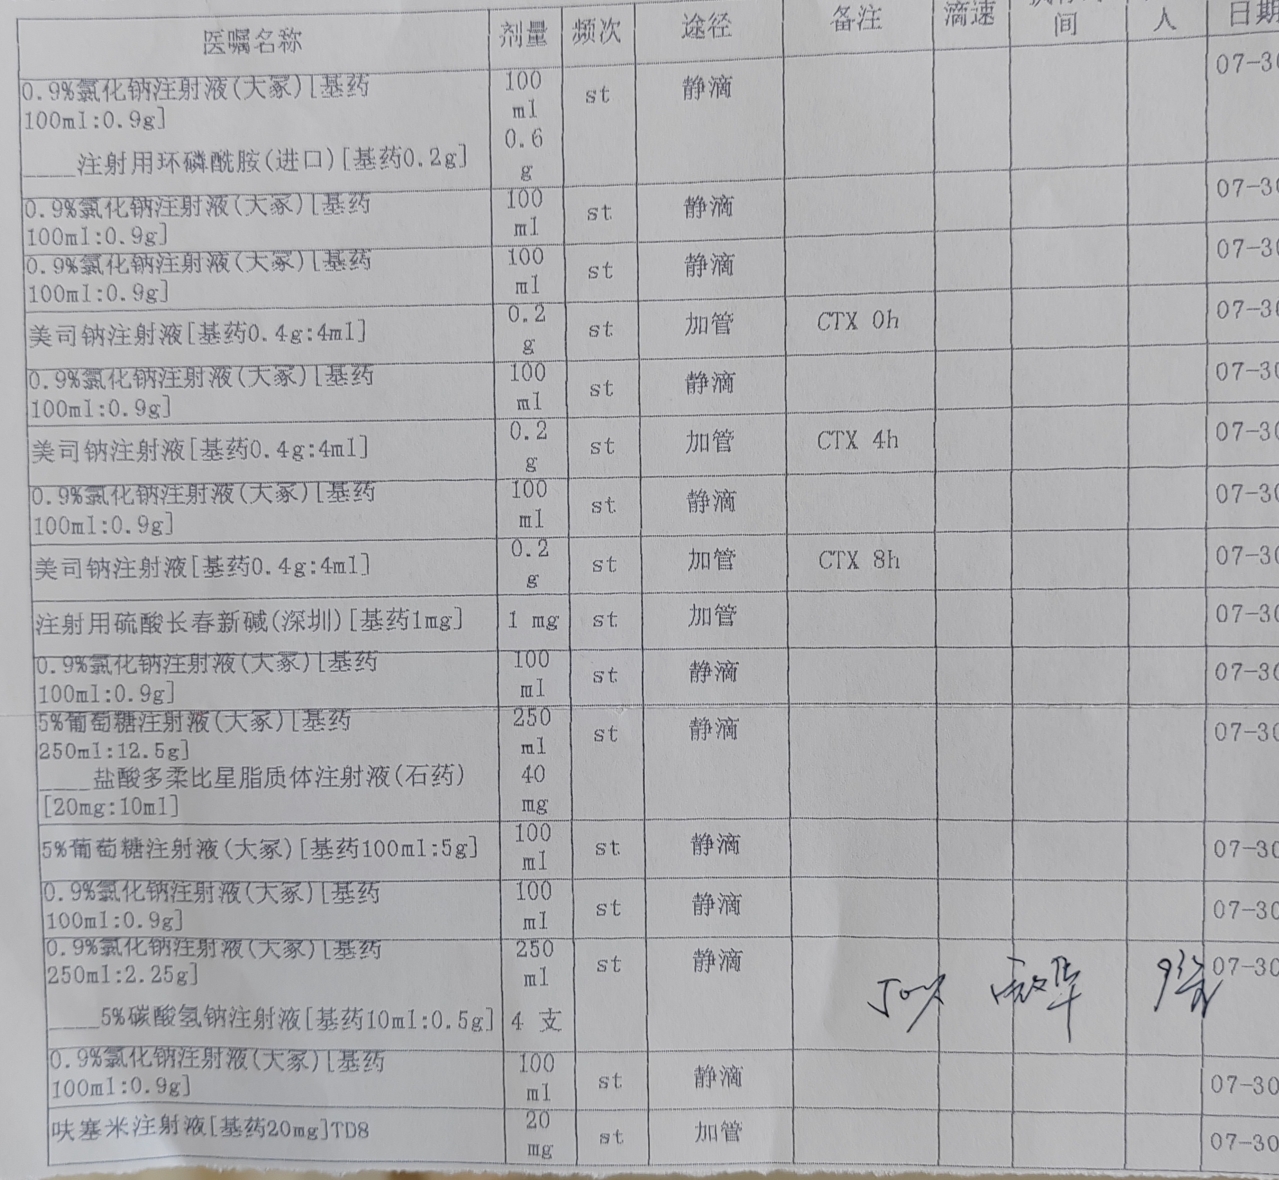 医嘱名称 剂量 频次 途径 备注 滴速 间 人 日期
0.9%氯化钠注射液(大冢)[基药 100 st 静滴 07-30
100ml:0.9g] ml
____注射用环磷酰胺(进口)[基药0.2g] 0.6
g
0.9%氯化钠注射液(大冢)[基药 100 st 静滴 07-30
100ml:0.9g] ml
0.9%氯化钠注射液(大冢)[基药 100 st 静滴 07-30
100ml:0.9g] ml
美司钠注射液[基药0.4g:4ml] 0.2 st 加管 CTX 0h 07-30
g
0.9%氯化钠注射液(大冢)[基药 100 st 静滴 07-30
100ml:0.9g] ml
美司钠注射液[基药0.4g:4ml] 0.2 st 加管 CTX 4h 07-30
g
0.9%氯化钠注射液(大冢)[基药 100 st 静滴 07-30
100ml:0.9g] ml
美司钠注射液[基药0.4g:4ml] 0.2 st 加管 CTX 8h 07-30
g
注射用硫酸长春新碱(深圳)[基药1mg] 1 mg st 加管 07-30
0.9%氯化钠注射液(大冢)[基药 100 st 静滴 07-30
100ml:0.9g] ml
5%葡萄糖注射液(大冢)[基药 250 st 静滴 07-30
250ml:12.5g] ml
____盐酸多柔比星脂质体注射液(石药) 40
[20mg:10ml] mg
5%葡萄糖注射液(大冢)[基药100ml:5g] 100 st 静滴 07-30
ml
0.9%氯化钠注射液(大冢)[基药 100 st 静滴 07-30
100ml:0.9g] ml
0.9%氯化钠注射液(大冢)[基药 250 st 静滴 07-30
250ml:2.25g] ml
____5%碳酸氢钠注射液[基药10ml:0.5g] 4 支
0.9%氯化钠注射液(大冢)[基药 100 st 静滴 07-30
100ml:0.9g] ml
呋塞米注射液[基药20mg]TD8 20 st 加管 07-30
mg